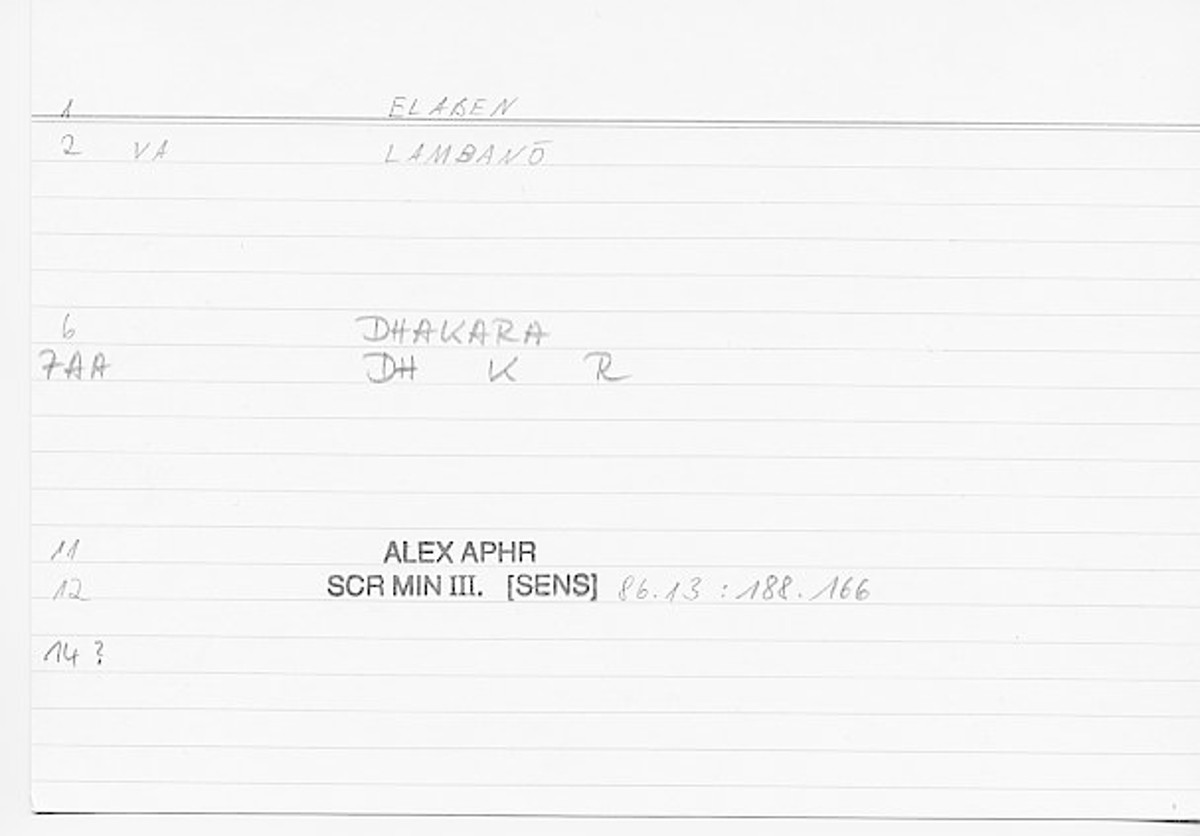 1 ELABEN
2 VA LAMBANŌ
6 DHAKARA
7AA DH K R
11 ALEX APHR
12 SCR MIN III. [SENS] 86.13 : 188.166
14 ?